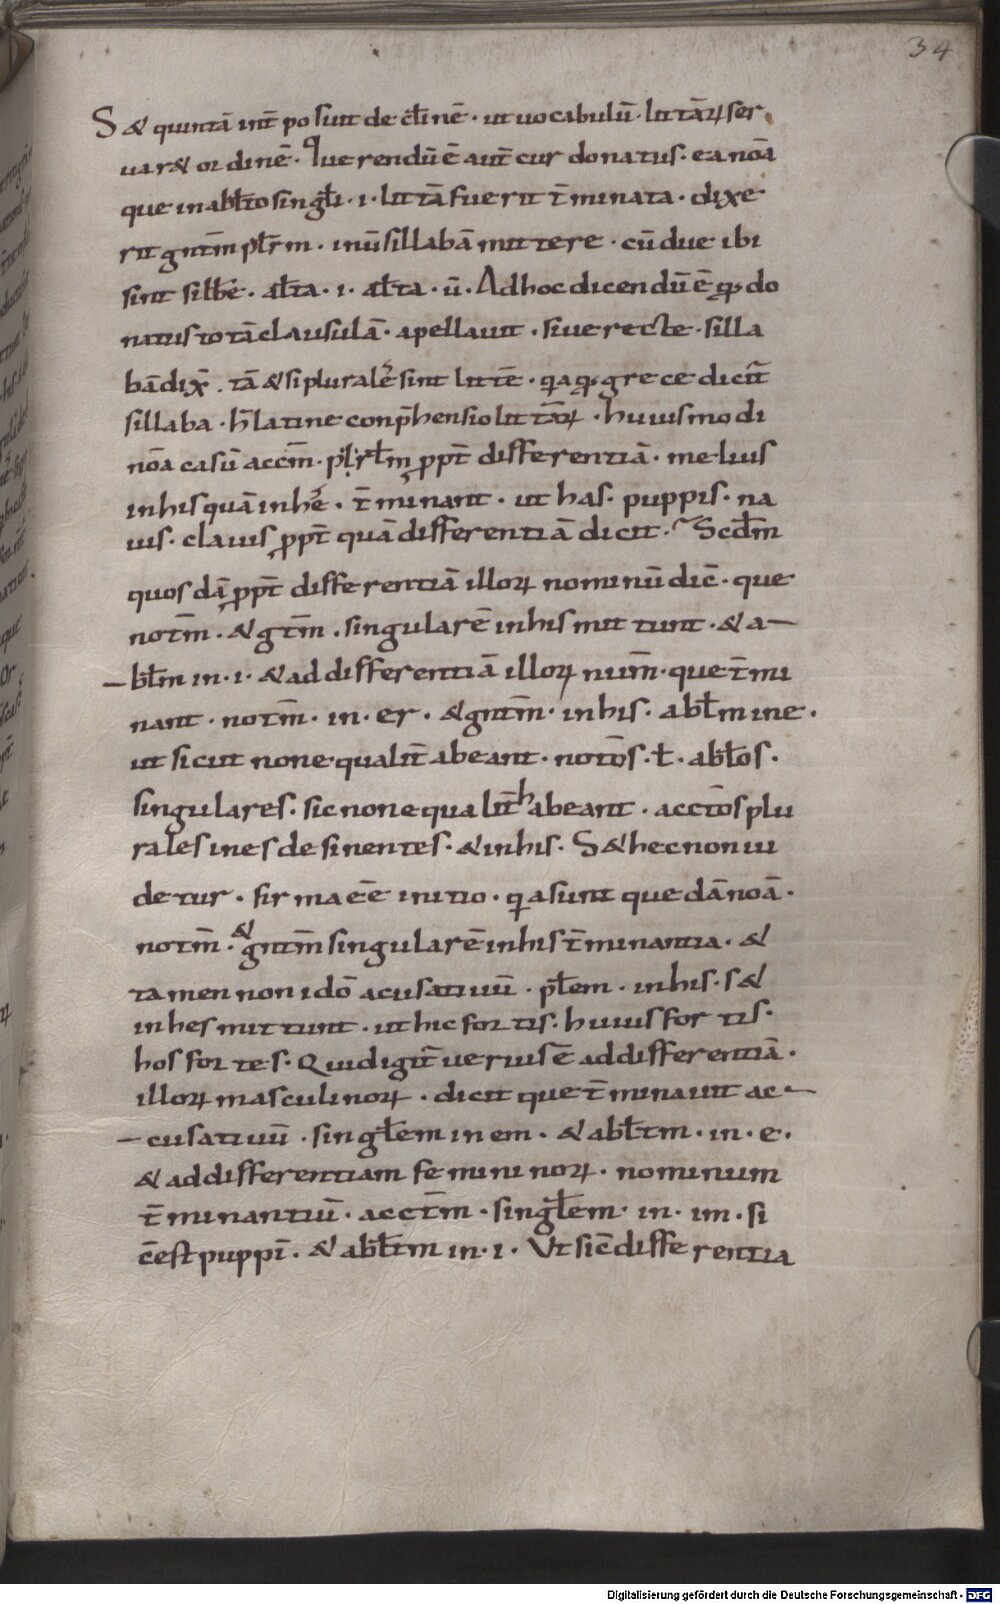 34
S& quintā int̄ posuit declinē · ut uocabulū · litt̄arꝝ ser
uar& ordinē · Querendū ē aut̄ cur donatus · ea noā
que in abłto singłi · i · littā fuerit t̄minata · dixe
rit gnt̄m płrm · in ū sillabā mittere · cū due ibi
sint siłłbe · ałta · i · ałta · ū · Ad hoc dicendū ē qꝫ do
natus totā clausulā · apellauit · siue recte · silla
bā dix̄ · tā & si plurales sint litt̄e · qa qꝫ grece dicit̄
sillaba · h̄ latine conp̄hensio litt̄arꝝ · huiusmodi
noā casū accm̄ · płrłm ꝓpt̄ differentiā · melius
in his quā in hes · t̄minant · ut has · puppis · na
uis · clauis ꝓpt̄ quā differentiā dicit · Scdm̄
quosdā ꝓpt̄ differentiā illorꝝ nominū dic̄ · que
notm̄ · & gtm̄ · singularē in his mittunt · & a–
–błm in · i · & ad differentiā illorꝝ num̄ · que t̄mi
nant · notm̄ · in · er · & gntm̄ · in his · abłm in e ·
ut sicut non equalit̄ abeant · notōs · ł · abłos ·
singulares · sic non equalit̄ habeant · acctōs plu
rales in es desinentes · & in his · S& hec non ui
detur · firma eē initio · qa sunt quedā noā ·
notm̄ · & gntm̄ singularē in his t̄minantia · &
tamen non idō acusatiuū · płem · in his · s&
in hes mittunt · ut hic fortis · huius fortis ·
hos fortes · Quid igit̄ uerius ē ad differentiā ·
illorꝝ masculinorꝝ · dicit que t̄minauit ac–
–cusatiuū · singłem in em · & abłtm · in · e ·
& ad differentiam femininorꝝ · nominum
t̄minantiū · acct̄m · singłem · in · im · si
c̄ est puppī · & abłtm in · i · Ut sic̄ differentia
Digitalisierung gefördert durch die Deutsche Forschungsgemeinschaft - DFG